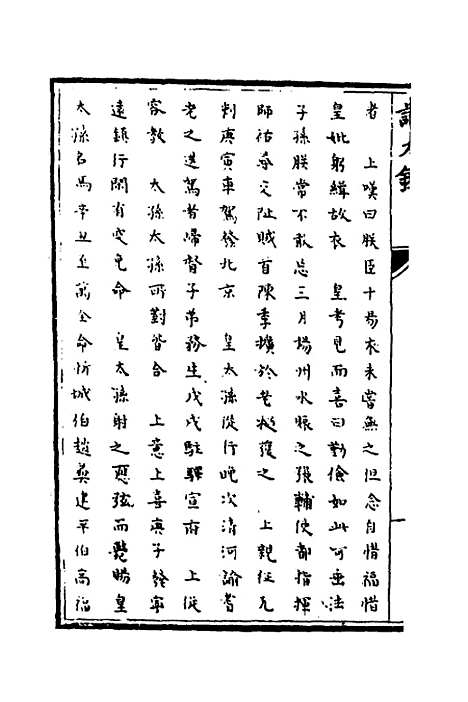 者　上嘆曰朕臣十易衣未嘗無之但念自惜福惜
皇妣躬緝故衣　皇考見而喜曰勤儉如此可垂法
子孫朕常不敢忘三月揚州水賑之張輔使都指揮
師祐等交阯賊首陳季擴於老撾獲之　上親征瓦
剌庚寅車駕發北京　皇太孫從行晚次清河諭耆
老之送駕者歸督子弟務生戊戌駐驛宣府　上從
容教　太孫太孫所對皆合　上意上喜庚子發寧
遠鎮行閒有突兔命　皇太孫射之應弦而斃賜皇
太孫名馬辛丑至萬全命忻城伯趙彝建平伯高福